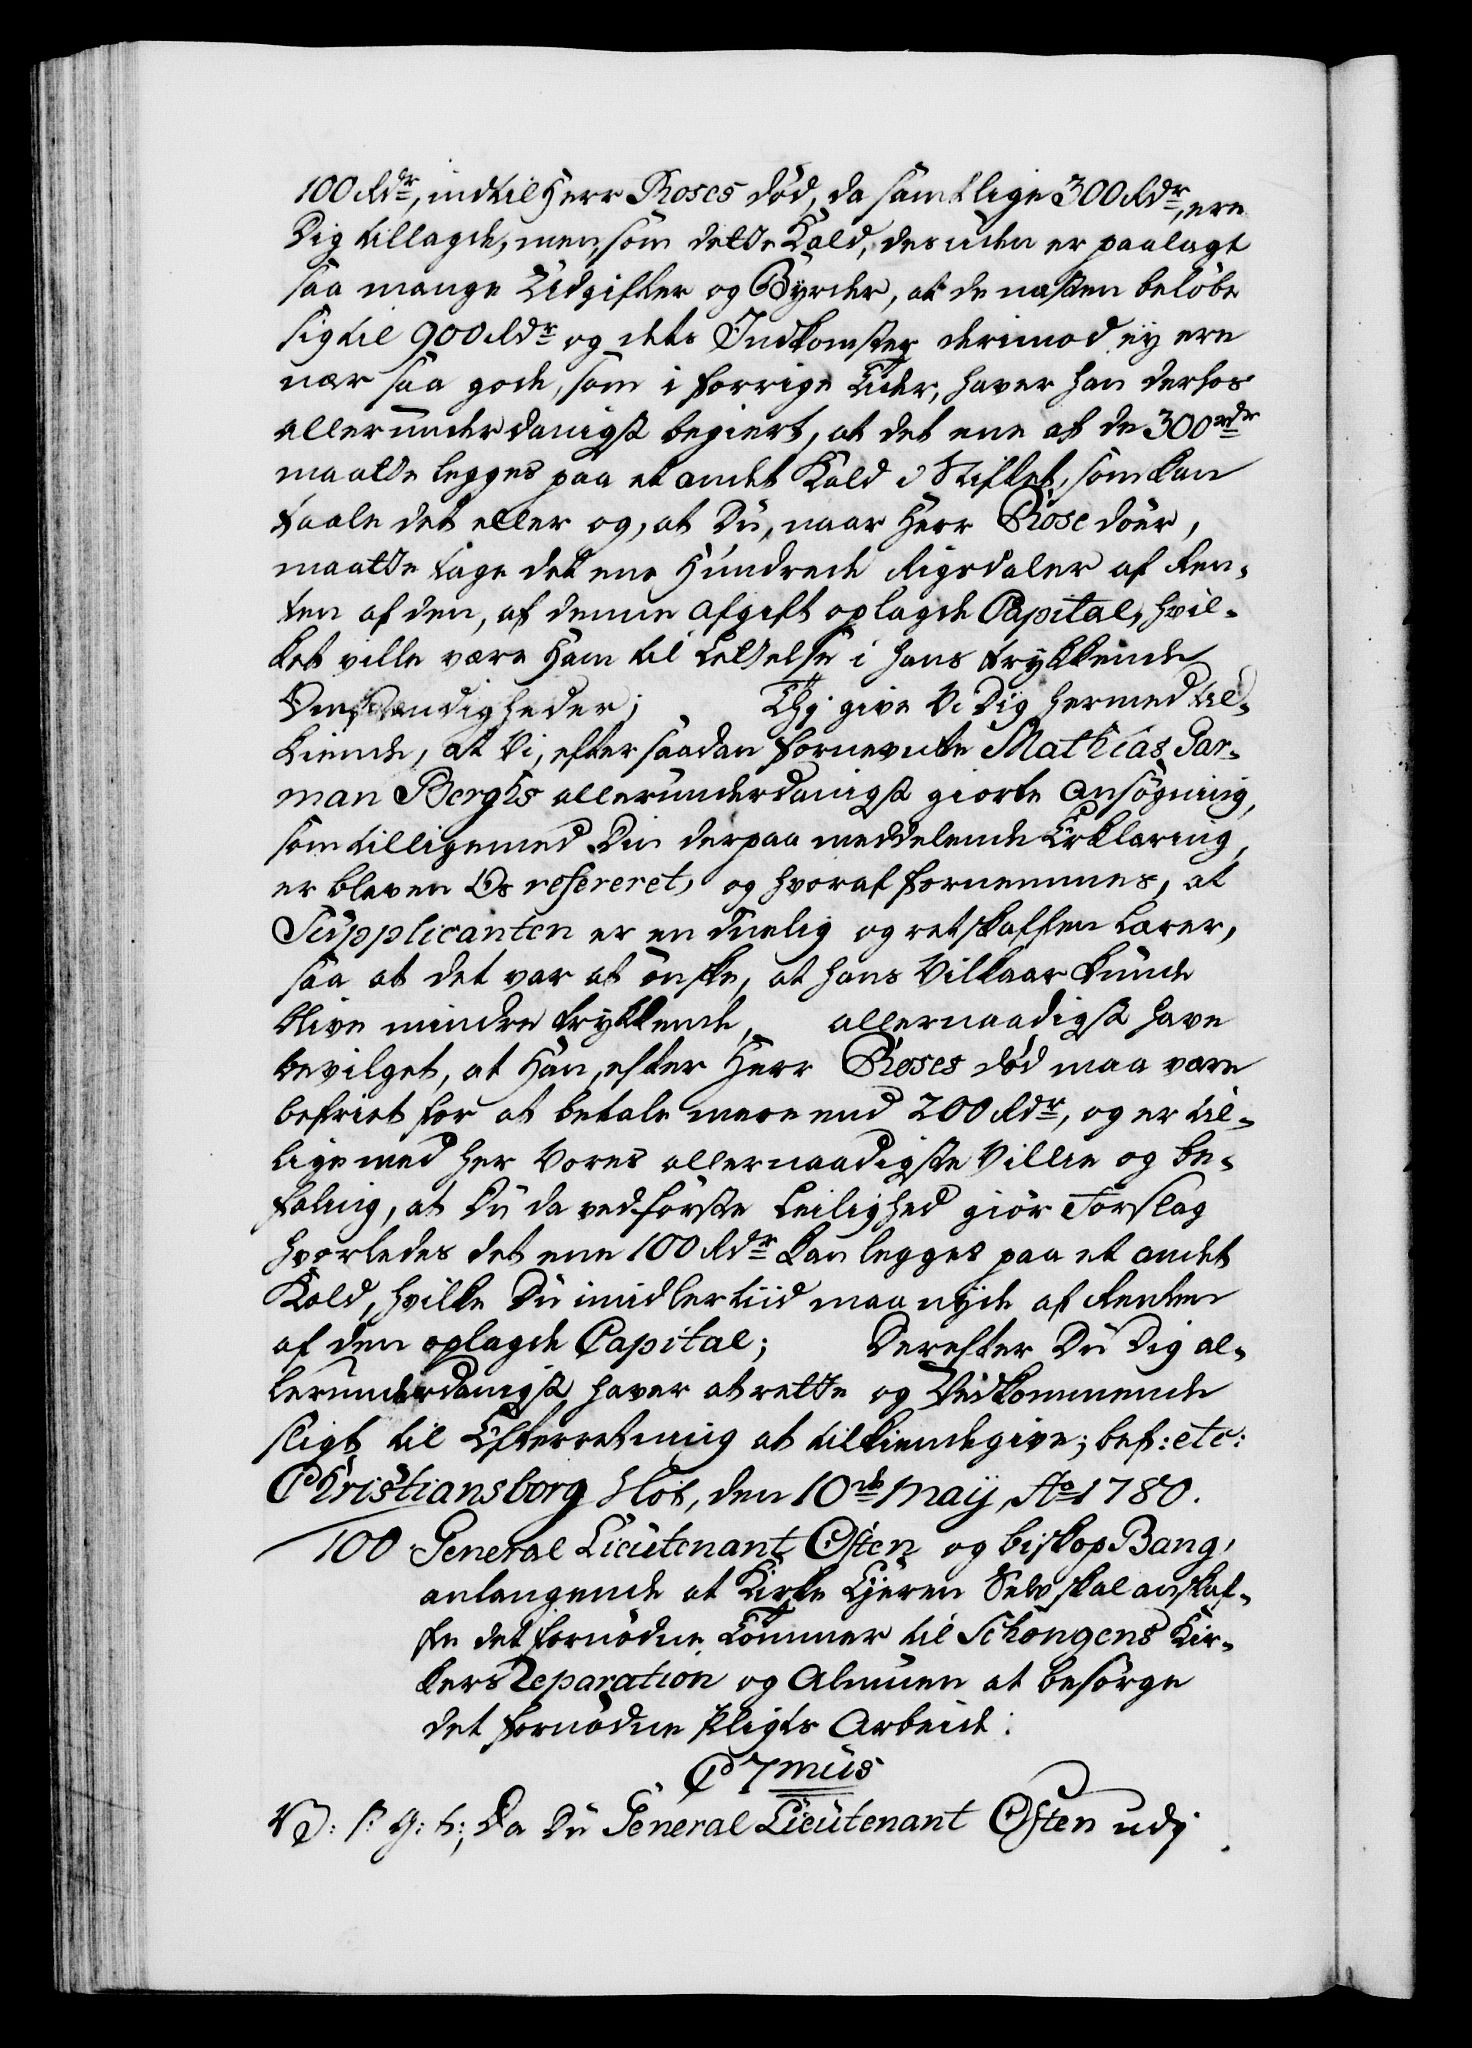 100 Rdr, indtil Herr Roses død, da samtlige 300 Rdr, ere
Dig tillagde, men, som dette Kald, desuden er paalagt
saa mange Udgifter og Byrder, at de næsten beløbe
sig til 900 Rdr og dets Indkomster derimod ey ere
nær saa gode, som i forrige Tider, haver han derhos
allerunderdanigst begiert, at det ene af de 300 rdr
maatte legges paa et andet Kald i Stiftet, som kan
taale det eller og, at Du, naar Herr Rose döer,
maatte tage det ene Hundrede Rigsdaler af Ren-
ten af den, af denne Afgift oplagde Capital, hvil-
ket ville være Ham til Lettelse i hans trykkende
Omstændigheder; Thj give Vi Dig hermed til-
kiende, at Vi, efter saadan fornevnte Mathias Gar-
man Berghs allerunderdanigst giorte Ansøgning,
som tilligemed Din derpaa meddelende Erklæring,
er bleven Os refereret, og hvoraf fornemmes, at
Supplicanten er en duelig og retskaffen Lærer,
saa at det var at önske, at hans Vilkaar kunde
blive mindre trykkende, allernaadigst have
bevilget, at Han, efter Herr Roses död maa være
befriet for at betale mere end 200 Rdr, og er til-
lige med her Vores allernaadigste Villie og be-
faling, at Du da ved förste Leilighed giör Forslag
hvorledes det ene 100 Rdr kan legges paa et andet
Kald, hvilke Du imidlertiid maa nyde af Renten
af den oplagde Capital; Derefter Du Dig al-
lerunderdanigst haver at rette og Vedkommende
sligt til Efterretning at tilkiendegive; bef: etc:
Christiansborg Slot, den 10de Maij, Ao 1780.
100 General Lieutenant Osten og biskop Bang,
anlangende at Kirke Ejeren Selv skal anskaf-
fe det fornødne Tömmer til Schöngens Kir-
kers Reparation og Almuen at besörge
det fornödne Pligts Arbeid:
C 7mus
V: S: G: T:; Da Du General Lieutenant Osten udj